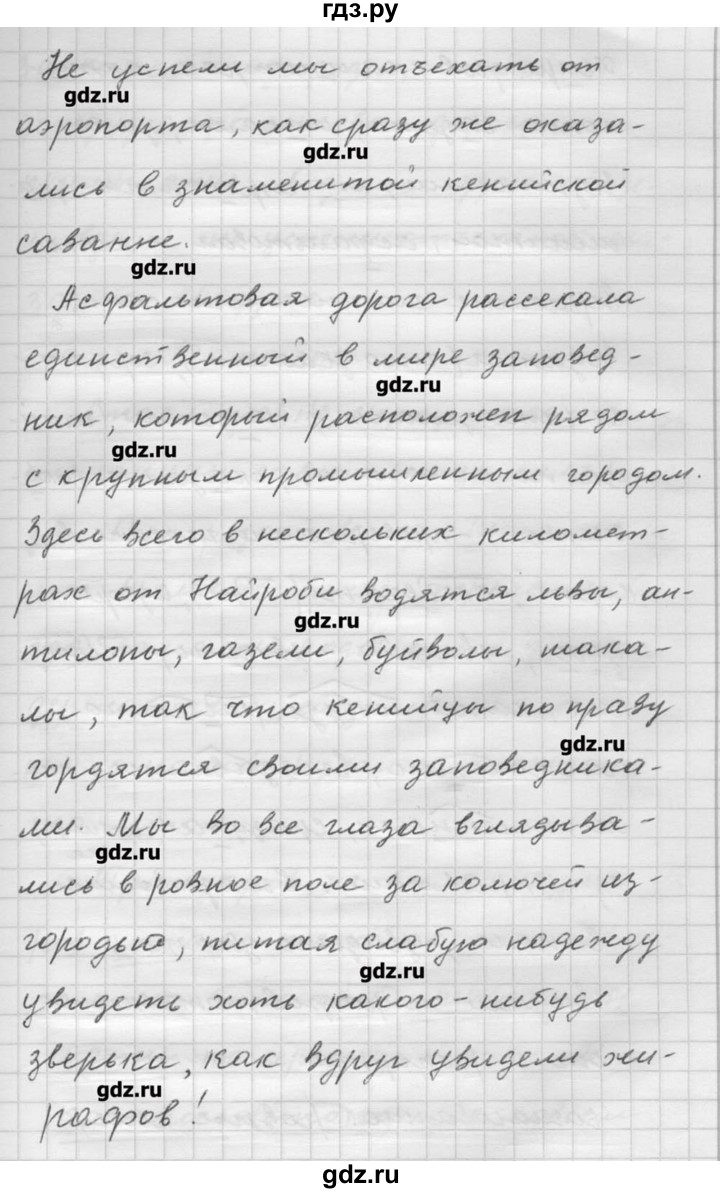 гдз.ру
Не успели мы отъехать от
gdz.ru
аэропорта, как сразу же оказа-
gdz.ru
лись в знаменитой кенийской
саванне.
gdz.ru
Асфальтовая дорога рассекала
единственный в мире заповед-
gdz.ru
ник, который расположен рядом
gdz.ru
с крупным промышленным городом.
Здесь всего в нескольких километ-
рах от Найроби водятся львы, ан-
gdz.ru
тилопы, газели, буйволы, шака-
лы, так что кенийцы по праву
gdz.ru
гордятся своими заповедника-
ми. Мы во все глаза вглядыва-
gdz.ru
лись в ровное поле за колючей из-
городью, питая слабую надежду
gdz.ru
увидеть хоть какого-нибудь
зверька, как вдруг увидели жи-
gdz.ru
рафов!
gdz.ru